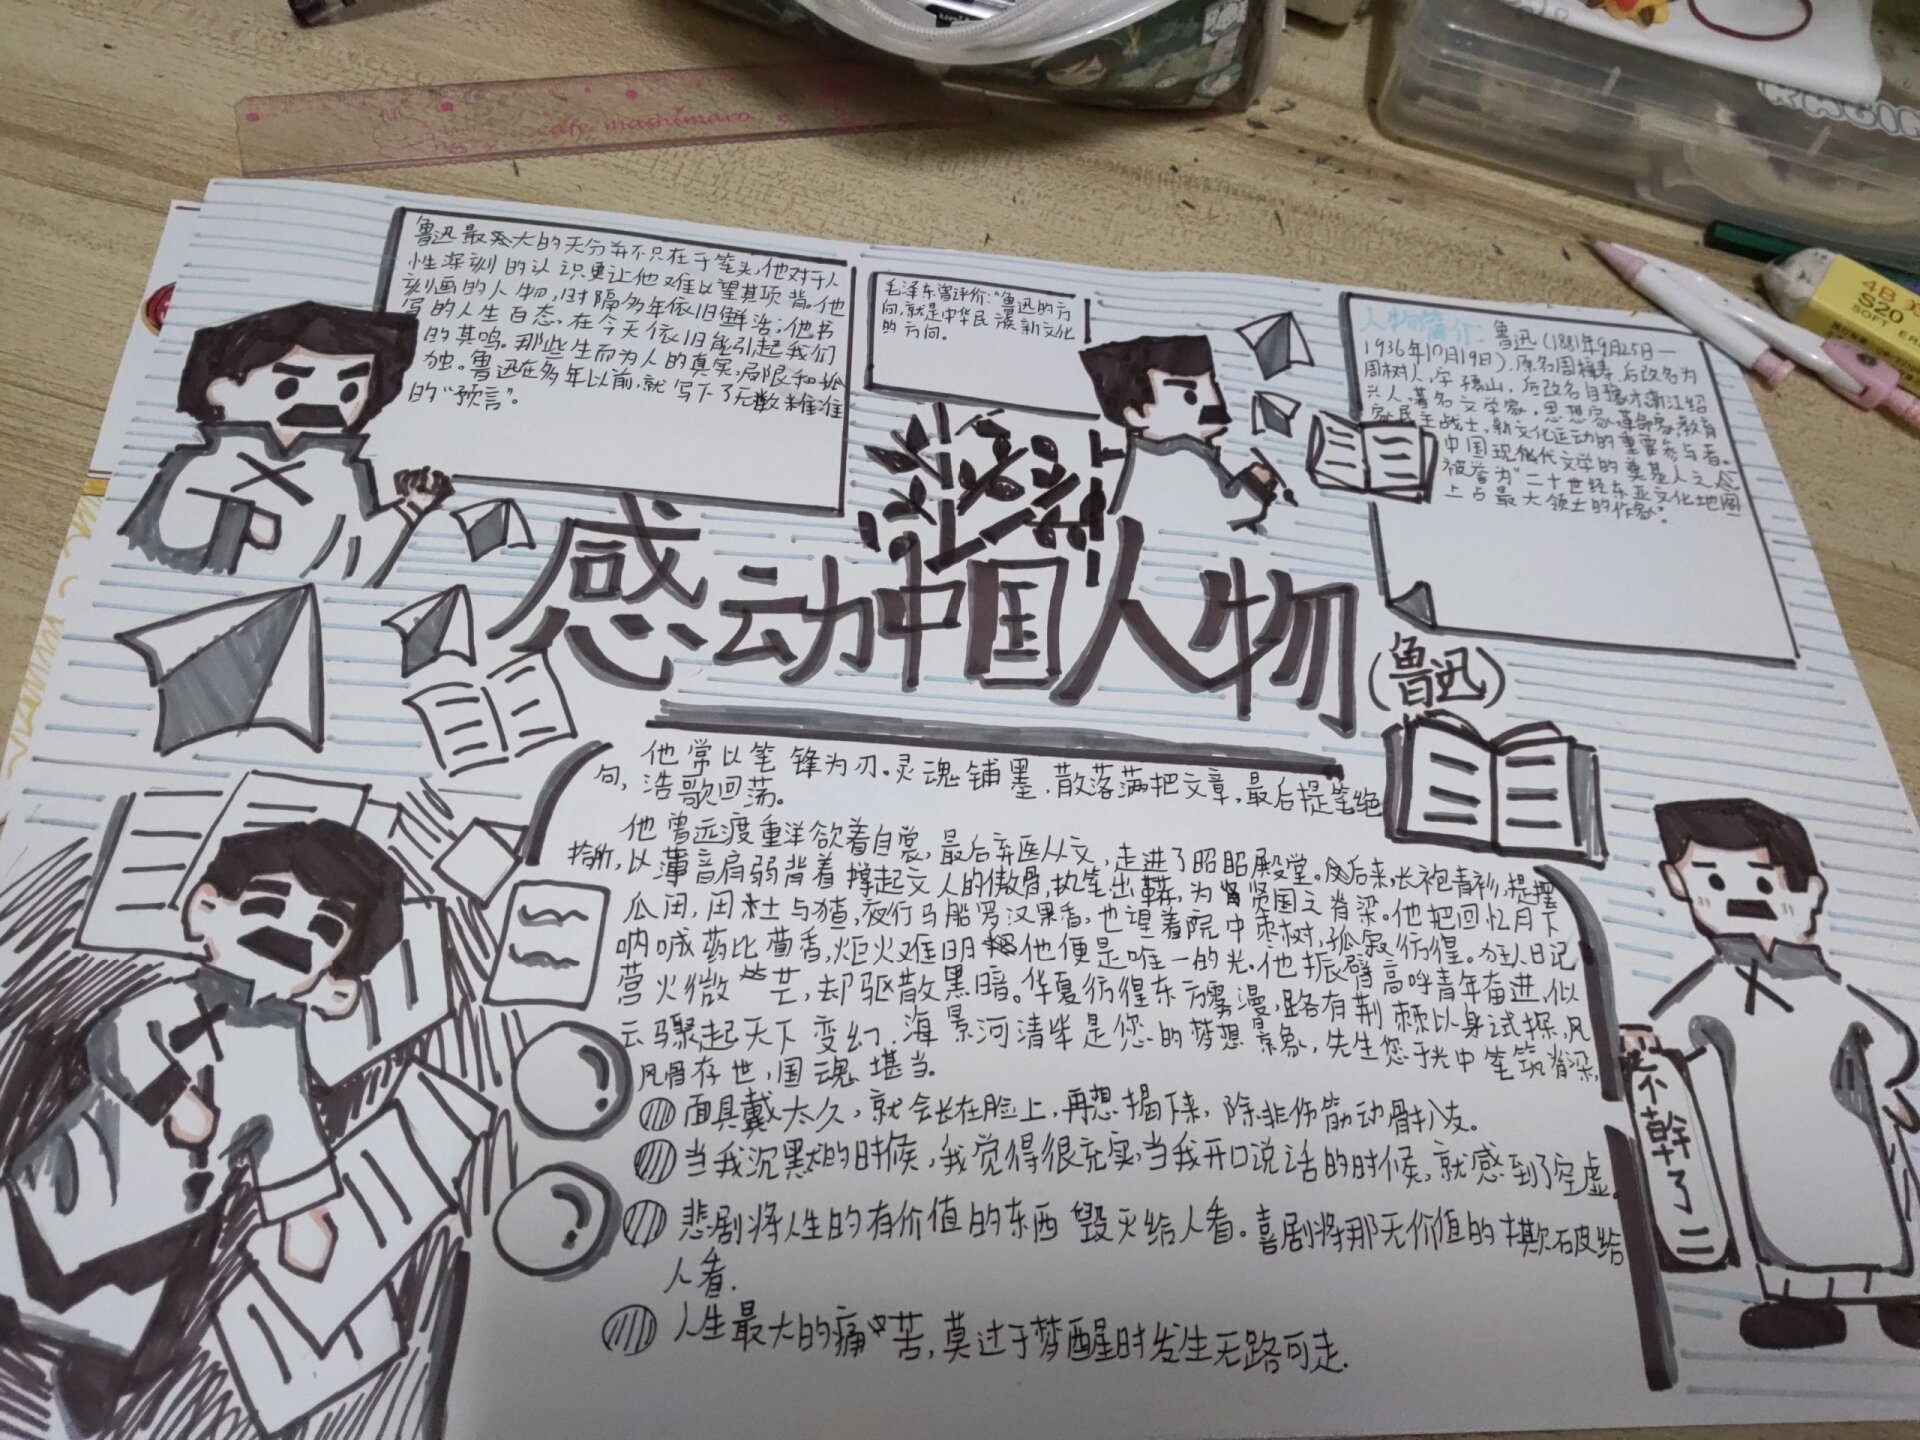 cafe mashimaro
4B
S20
SOFT
鲁迅最大的天分并不只在于笔头,他对于人
性深刻的认识更让他难以望其项背。他
刻画的人物,时隔多年依旧鲜活;他书
写的人生百态,在今天依旧能引起我们
的共鸣。那些生而为人的真实,局限和孤
独。鲁迅在多年以前,就写下了无数精准
的“预言”。
毛泽东曾评价:“鲁迅的方
向,就是中华民族新文化
的方向。
人物简介:鲁迅(1881年9月25日—
1936年10月19日),原名周樟寿,后改名
周树人,字豫山,后改名豫才,浙江绍
兴人,著名文学家,思想家,革命家,教育
家,民主战士,新文化运动的重要参与者。
中国现代文学的奠基人之一。
被誉为“二十世纪东亚文化地图
上占最大领土的作家”。
感动中国人物
(鲁迅)
他常以笔锋为刃。灵魂铺墨,散落满把文章,最后提笔绝
句,浩歌回荡。
他曾远渡重洋欲着白裳,最后弃医从文,走进了昭昭殿堂。后来,长袍青衫,提摆
拾阶,以薄音肩弱背着撑起文人的傲骨,执笔出鞘,为贤国之脊梁。他把回忆月下
瓜田,闰土与猹,夜行马船罗汉果香,也望着院中枣树,孤寂彷徨。狂人日记
呐喊药比茴香,炬火难明他便是唯一的光。他振臂高呼青年奋进,似
萤火微芒,却驱散黑暗。华夏彷徨东方雾漫,路有荆棘以身试探,风
云骤起天下变幻,海景河清毕是您的梦想景象,先生您于光中笔筑脊梁,
风骨存世,国魂堪当。
面具戴太久,就会长在脸上,再想揭下来,除非伤筋动骨扒皮。
当我沉默的时候,我觉得很充实,当我开口说话的时候,就感到了空虚。
悲剧将人生的有价值的东西毁灭给人看。喜剧将那无价值的撕破给
人看.
人生最大的痛苦,莫过于梦醒时发生无路可走.
不幹了二